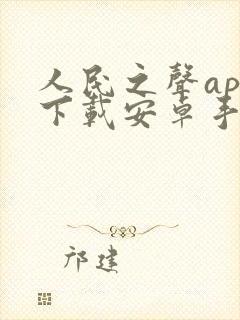 人民之聲ap
下載安卓手
邝建